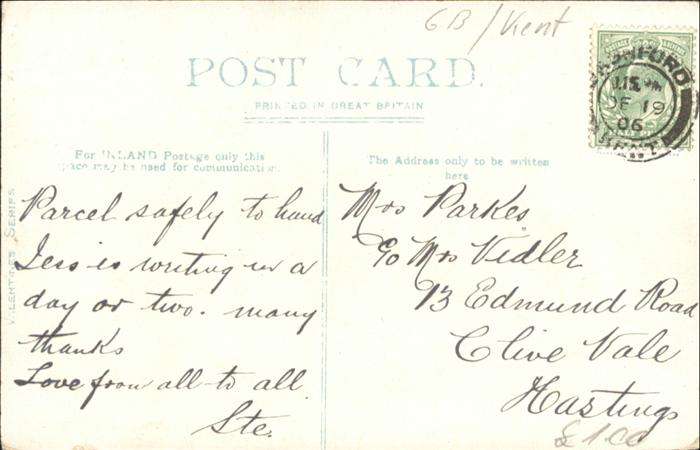 GB/Kent
POST CARD.
PRINTED IN GREAT BRITAIN
For INLAND Postage only this
space may be used for communication.
The Address only to be written
here
VALENTINES SERIES
Parcel safely to hand
Jess is writing in a
day or two. many
thanks
Love from all to all
Ste.
Mrs Parkes
c/o Mrs Vidler
13 Edmund Road
Clive Vale
Hastings
£1.00
DE 19
06
KENT